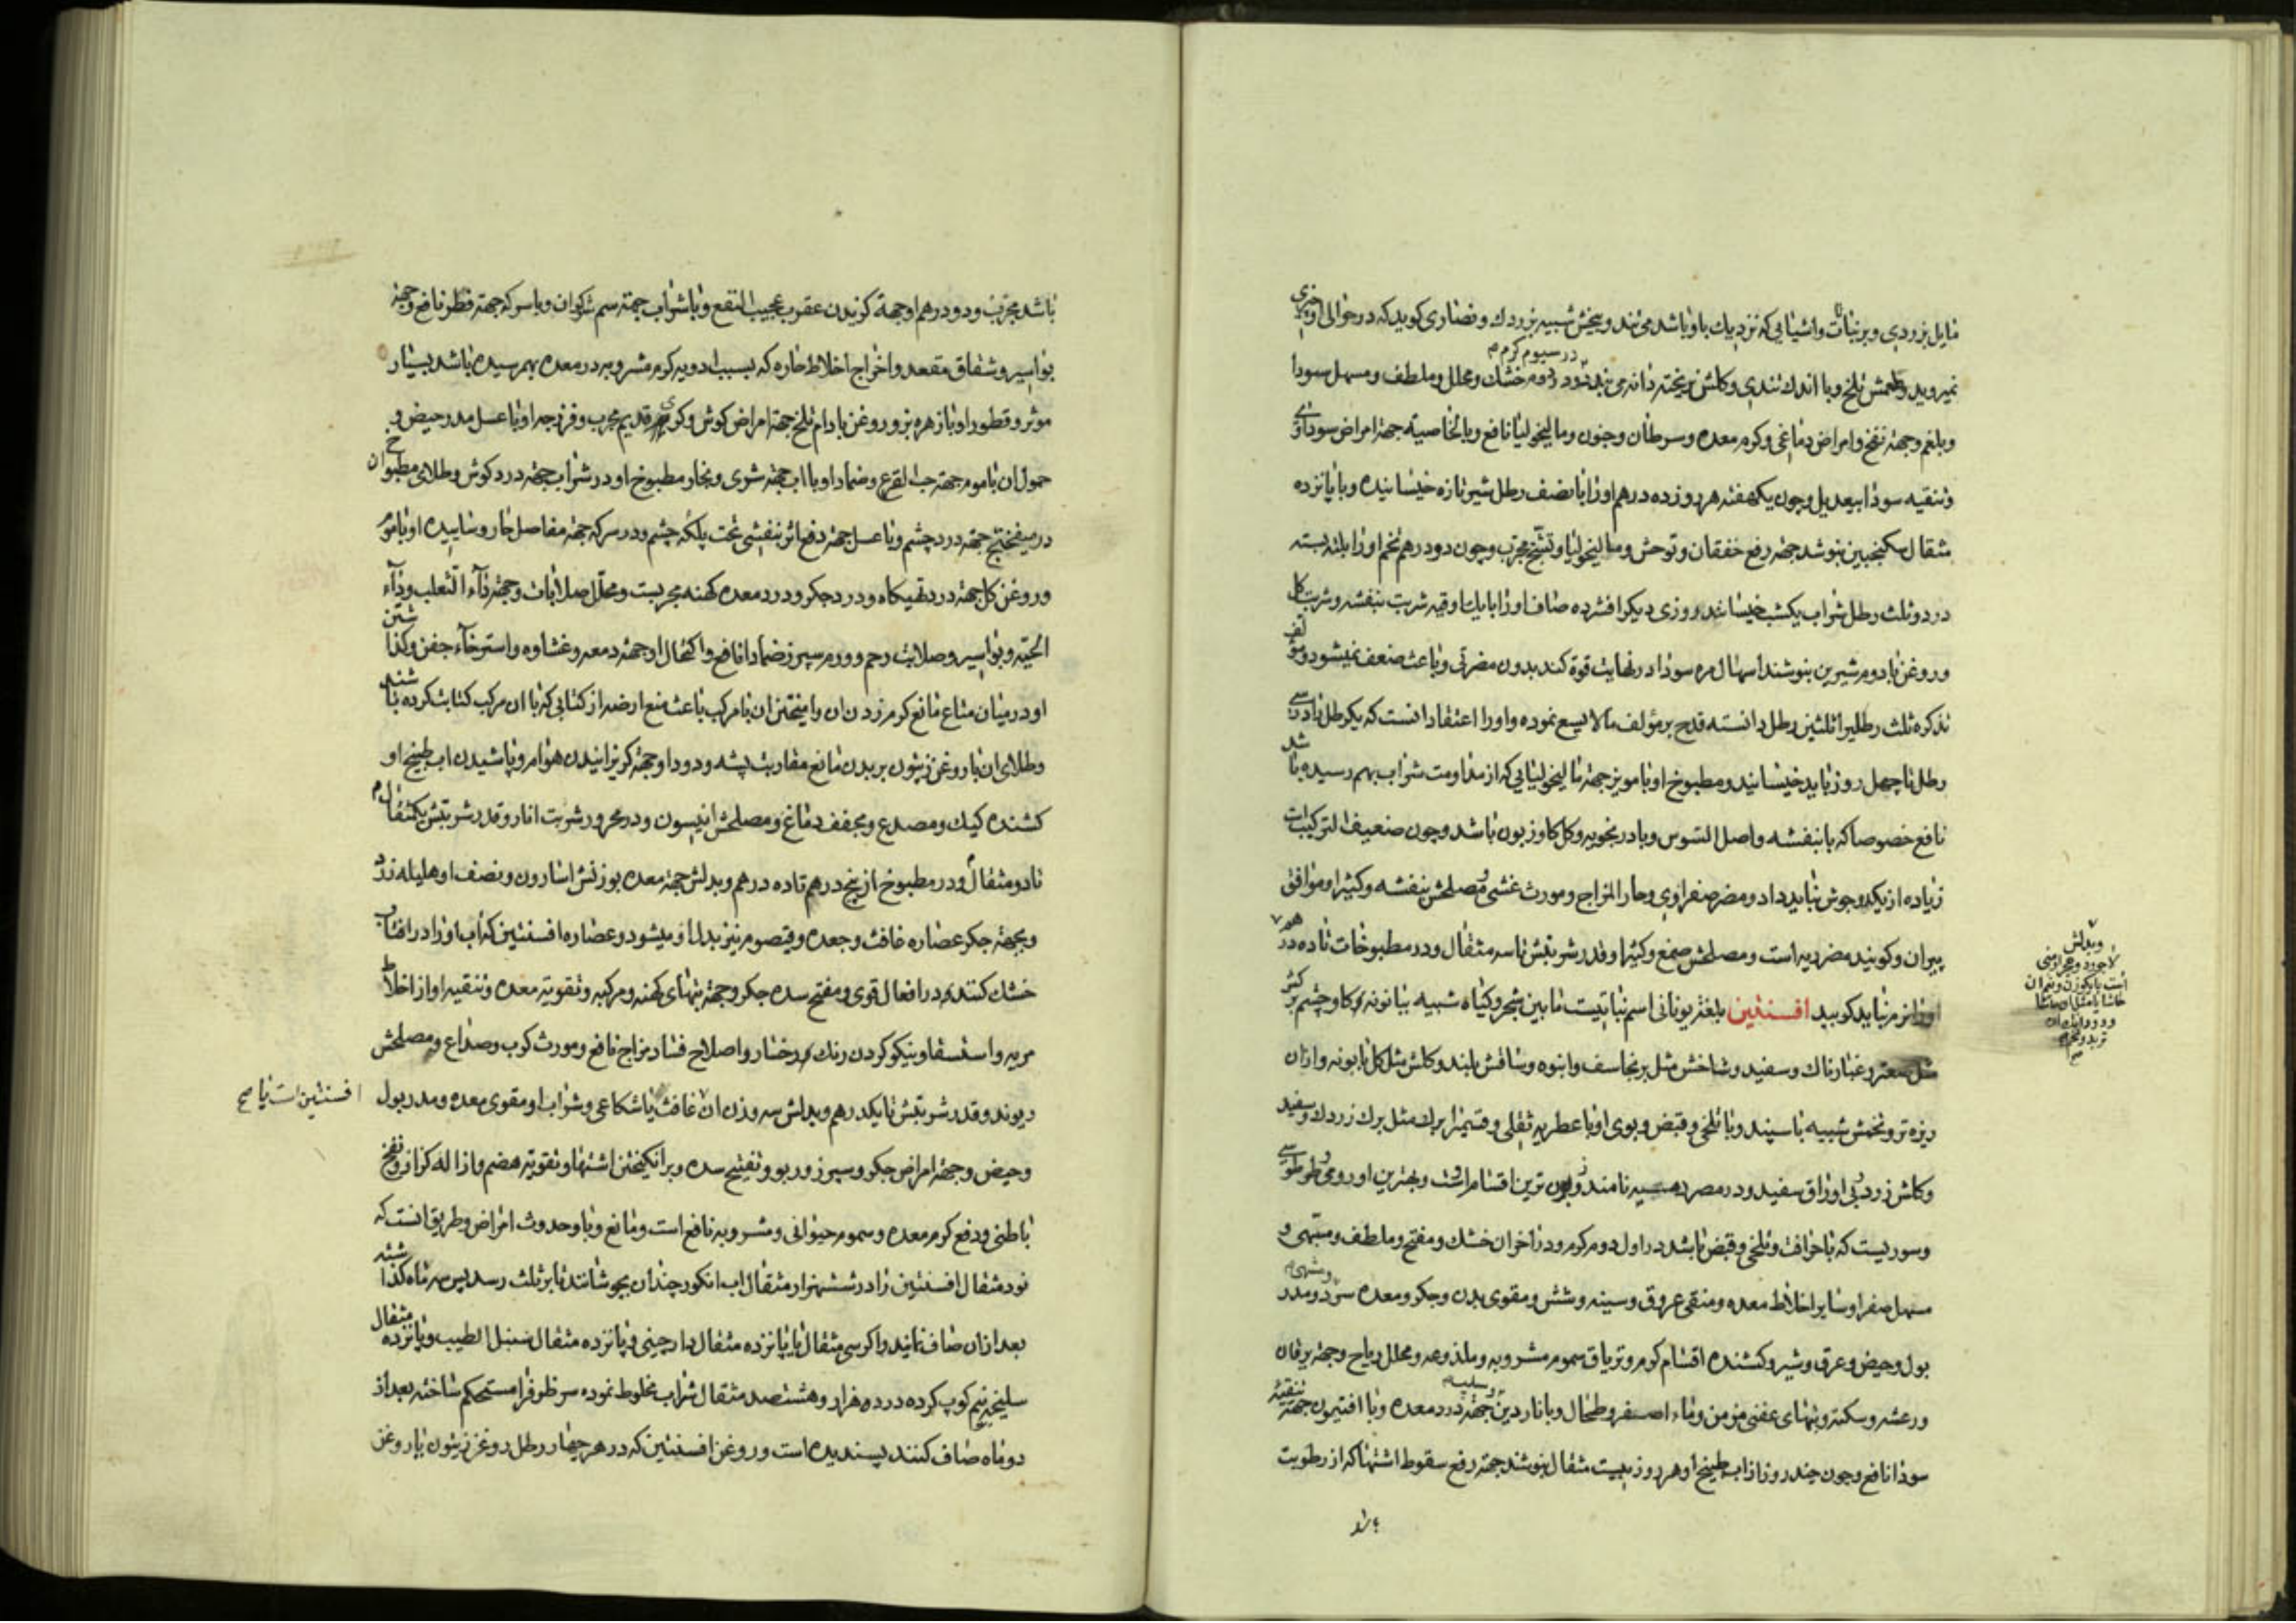 مایل بزردی و بر نباتات و اشیایی که نزدیک باو باشد می تند و بیخش شبیه بزردك و نصاری کوید که در حوالی او چیزی
نمیروید و طعمش تلخ و با اندك تندی و کلش ریخته دانه می بندد و در دوم خشك و محلل و ملطف و مسهل سودا
در سیوم کرم
و بلغم و جهة نفخ و امراض دماغی و کرم معده و سرطان و جنون و مالیخولیا نافع و بالخاصیه جهة امراض سوداوی
و تنقیه سودا بیعدیل و چون یکهفته هر روز ده درهم اورا با نصف رطل شیر تازه خیسانیده و با پانزده
مثقال سکنجبین بنوشد جهة رفع خفقان و توحش و مالیخولیا و تشنج مجرب و چون دو درهم تخم اورا بلته بسته
در دو ثلث رطل شراب یکشب خیسانند و روزی دیکر افشرده صاف اورا با یك اوقیه شربت بنفشه و شربت کل
و روغن بادوم شیرین بنوشند اسهال مره سودا در نهایت قوة کند بدون مضرتی و باعث ضعف نمیشود و مؤلف
تذکره ثلث رطل را ثلثین رطل دانسته قدح بر مؤلف مالایسع نموده و اورا اعتقاد انست که یکرطل را در سی
رطل تا چهل روز باید خیسانید و مطبوخ او با مویز جهة مالیخولیایی که از مداومت شراب بهم رسیده باشد
نافع خصوصا که با بنفشه و اصل السوس و بادرنجویه و کل کاوزبون باشد و چون ضعیف الترکیب است
زیاده از یکدو جوش نباید داد و مضر صفراوی و حار المزاج و مورث غشی و مصلحش بنفشه و کثیرا و موافق
پیران و کویند مضر ریه است و مصلحش صمغ و کثیرا و قدر شربتش تا سه مثقال و در مطبوخات تا ده درهم
و بدلش
لاجورد و حجر ارمنی
اورا نرم نباید کوبید افسنتین بلغة یونانی اسم نباتیست ما بین شجر و کیاه شبیه ببابونه کاو چشم برکش
مثل سعتر و غبارناك و سفید و شاخش مثل برنجاسف و انبوه و ساقش بلند و کلش مثل کل بابونه و از ان
ریزه تر و تخمش شبیه باسپند و با تلخی و قبض و بوی او با عطریه ثقلی و قسمیرا برك مثل برك زردك و سفید
و کلش زرد بی اوراق سفید و در مصر نامند و زبون ترین اقسام است و بهترین او رومی و طرطوسی
و سوریست که با حرافت و تلخی و قبض باشد در اول دوم کرم و در آخر ان خشك و مفتح و ملطف و مشهی و
مسهل صفرا و سایر اخلاط معده و منقی عروق و سینه و شش و مقوی بدن و جکر و معده سرد و مدر
بول و حیض و عرق و شیر و کشنده اقسام کرم و تریاق سموم مشروبه و ملذوعه و محلل ریاح و جهة یرقان
و رعشه و سکته و تبهای عفنی مزمن و ماء اصفر و طحال و با ناردین جهة درد معده و با افتیمون جهة تنقیه
سودا نافع و چون چند روز از اب طبیخ او هر روز بیست مثقال بنوشد جهة رفع سقوط اشتها که از رطوبت
باشد مجرب و دو درهم او جهة کزیدن عقرب عجیب النفع و با شراب جهة سم شوکران و با سرکه جهة فطر نافع و جهة
بواسیر و شقاق مقعد و اخراج اخلاط حاره که بسبب ادویه کرم مشروبه در معده بهم رسیده باشد بسیار
موثر و قطور او با زهره بز و روغن بادام تلخ جهة امراض کوش و کری قدیم مجرب و فرزجه او با عسل مدر حیض و
حمول ان با موم جهة حب القرع و ضماد او با اب جهة شری و بخار مطبوخ او در شراب جهة درد کوش و طلای مطبوخ ان
در میفختج جهة درد چشم و با عسل جهة دفع اثر بنفشی تحت پلك چشم و در سرکه جهة مفاصل حار و ساییده او با موم
و روغن کل جهة درد تهیکاه و درد جکر و درد معده کهنه مجربست و محلل صلابات و جهة داء الثعلب و داء
الحیه و بواسیر و صلابت رحم و ورم سپرز ضمادا نافع و اکتحال او جهة دمعه و غشاوه و استرخاء جفن و کذاشتن
او در میان متاع مانع کرم زدن ان و امیختن ان با مرکب باعث منع ارضه از کتابی که با ان مرکب کتابت کرده باشند
و طلای ان با روغن زیتون بر بدن مانع مقاربت پشه و دود او جهة کریزانیدن هوام و پاشیدن اب طبیخ او
کشنده کیك و مصدع و مجفف دماغ و مصلحش انیسون و در محرور شربت انار و قدر شربتش یکمثقال
تا دو مثقال و در مطبوخ از پنج درهم تا ده درهم و بدلش جهة معده بوزنش اسارون و نصف او هلیله زرد
و بجهة جکر عصاره غافث و جعده و قیصوم نیز بدل او میشود و عصاره افسنتین که اب اورا در افتاب
خشك کنند در افعال قوی و مفتح سده جکر و جهة تبهای کهنه و مرکبه و تقویة معده و تنقیه او از اخلاط
مریه و استسقا و نیکو کردن رنك رخسار و اصلاح فساد مزاج نافع و مورث کرب و صداع و مصلحش
ریوند و قدر شربتش تا یکدرهم و بدلش سه وزن ان غافث یا شکاعی و شراب او مقوی معده و مدر بول
افسنتین است یا صح
و حیض و جهة امراض جکر و سپرز و ربو و تفتیح سده و برانکیختن اشتها و تقویة هضم و ازاله کزاز و نفخ
باطنی و دفع کرم معده و سموم حیوانی و مشروبه نافع است و مانع وبا و حدوث امراض و طریق انست که
نود مثقال افسنتین را در ششهزار مثقال اب انکور چندان بجوشانند تا بر ثلث رسد پس سه ماه کذاشته
بعد از ان صاف نمایند و اکر سی مثقال با پانزده مثقال دارچینی و پانزده مثقال سنبل الطیب و پانزده مثقال
سلیخه نیم کوب کرده در ده هزار و هشتصد مثقال شراب مخلوط نموده سر ظرفرا مستحکم ساخته بعد از
دو ماه صاف کنند پسندیده است و روغن افسنتین که در هر چهار رطل روغن زیتون یا روغن